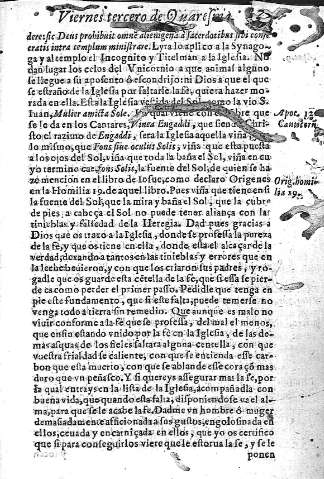 Viernes tercero de Quaresma.
dere: sic Deus prohibuit omnẽ alienigena à sacerdotibus sibi conse-
cratis intra templum ministrare. Lyra lo aplico a la Synago-
ga y al templo el Incognito y Titelman a la Iglesia. No
dan lugar los celos del Vnicornio a que animal alguno
se llegue a su aposento o escondrijo ni Dios a que el que
se estrañó de la Iglesia por faltarle la fe, quiera hazer mo-
rada en ella. Esta la Iglesia vestida del Sol como la vio S.
Iuan, Mulier amicta Sole. Y qual viene con el nombre que
se le da en los Cantares, Vinea Engaddi, que siendo Chri-
sto el razimo de Engaddi, sera la Iglesia aquella viña
lo mismo, que Fons siue oculus Solis, viña que esta puesta
a los ojos del Sol, viña que toda la baña el Sol, viña en cu
yo termino cae fons Solis, la fuente del Sol, de quien se ha
ze mencion en el libro de Iosue, como declaro Origenes
en la Homilia 19. de aquel libro. Pues viña que tiene en si
la fuente del Sol, que la mira y baña el Sol, que la cubre
de pies a cabeça el Sol no puede tener aliança con las
tinieblas y falsedad de la Heregia. Dad pues gracias a
Dios que os dexó a la Iglesia, donde se professa la pureza
de la fe, y que os tiene en ella, donde esta el alcaçar de la
verdad, dexando a tantos en las tinieblas y errores que en
la leche beuieron, y con que los criaron sus padres, y ro-
gadle que os guarde esta cẽtella de la fe, que si essa se pier-
de es como perder el primer passo. Pedidle que tenga en
pie este fundamento, que si este falta, puede temerse no
venga todo a tierra sin remedio. Que aunque es malo no
viuir conforme a la fe que se professa, del mal el menos,
que ensin estando vnido por la fe en la Iglesia, de las de-
mas asquas de los fieles saltara alguna centella, con que
vuestra frialdad se caliente, con que se encienda esse car-
bon que esta muerto, con que se ablande esse coraçõ mas
duro que vn peñasco. Y si quereys assegurar mas la fe, por
la qual entrays en la lista de la Iglesia, acompañadla con
buena vida, que quando esta falta, disponiendose va el al-
ma, para que se le acabe la fe. Dadme vn hombre ó muger
demasiadamente afficionad a sus gustos, engolosinada en
ellos, ceuada y encarniçada en ellos, que yo os certifico
que si para conseguirlos viere que le estorua la fe, y se le
ponen
Apoc. 12
Canticorum
Orig. homi-
lia 19.